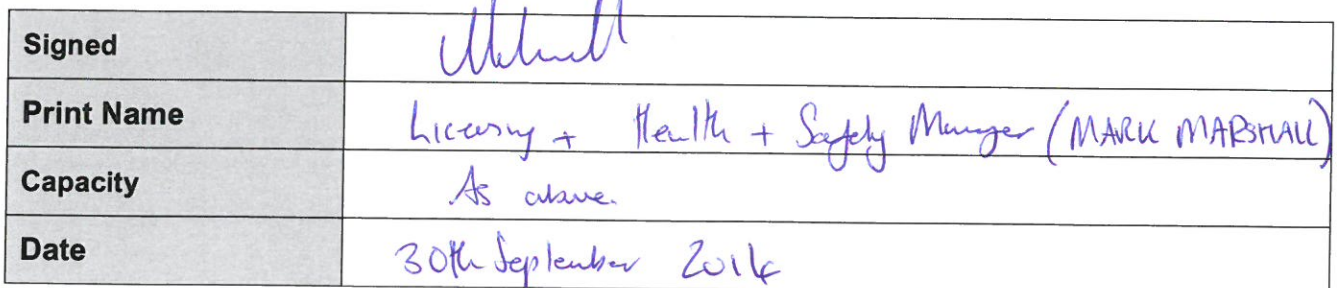 Signed
Print Name Licensing + Health + Safety Manager (MARK MARSHALL)
Capacity As above.
Date 30th September 2014